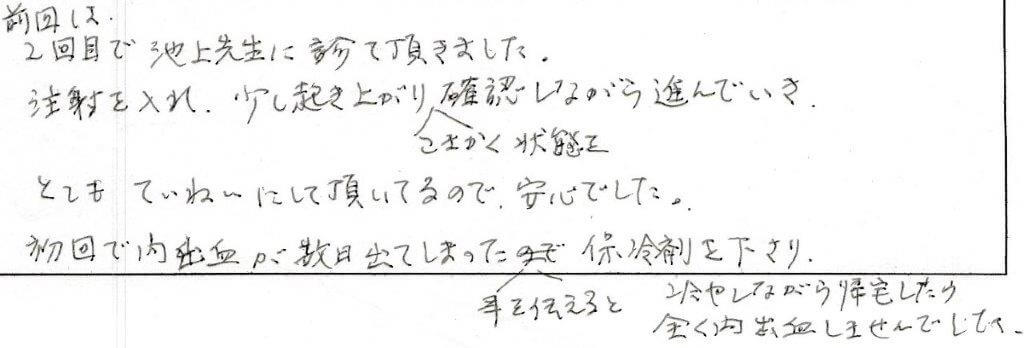 前回は
2回目で池上先生に診て頂きました。
注射を入れ、少し起き上がり確認しながら進んでいき、
こまかく状態を
とても ていねいにして頂いてるので、安心でした。
初回で内出血が数日出てしまったので 保冷剤を下さり、
事を伝えると 冷やしながら帰宅したら
全く内出血しませんでした。